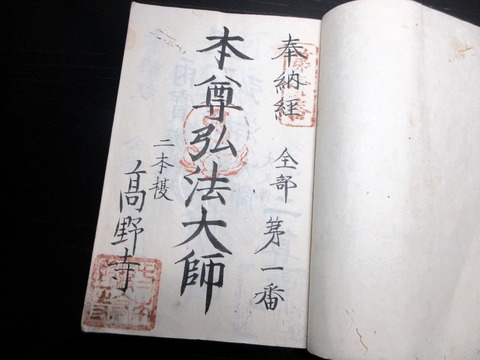 奉納経 全部 第一番
本尊弘法大師
二本榎
高野寺